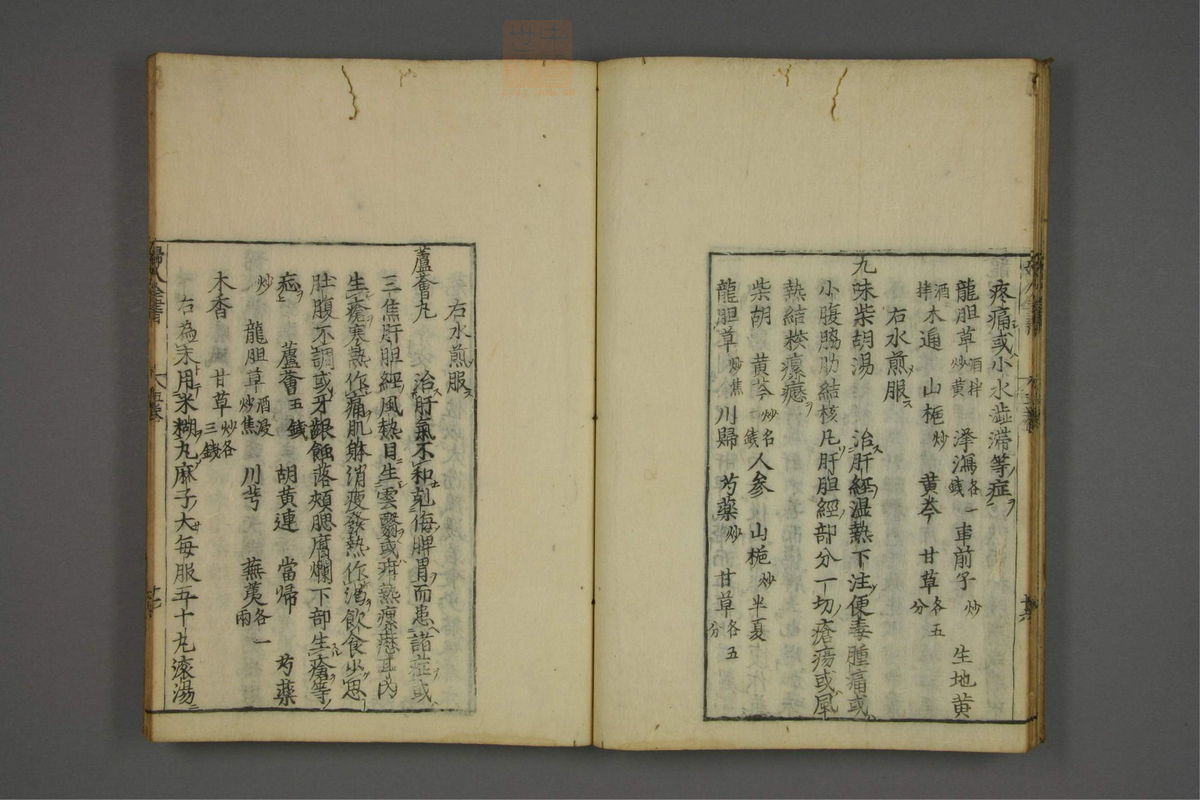 疼痛或小水澁滞等症
龍胆草酒拌炒黄 澤瀉各一錢 車前子炒 生地黄
酒拌 木通 山梔炒 黄芩 甘草各五分
右水煎服
九味柴胡湯 治肝經湿熱下注便毒腫痛或
小腹脇肋結核凡肝胆經部分一切瘡瘍或風
熱結核瘰癧
柴胡 黄芩炒各一錢 人参 山梔炒 半夏
龍胆草炒焦 川歸 芍藥炒 甘草各五分
右水煎服
蘆薈丸 治肝氣不和剋侮脾胃而患諸症或
三焦肝胆經風熱目生雲翳或疳熱瘰癧耳内
生瘡寒熱作痛肌躰消疲發熱作渇飲食少思
肚腹不調或牙齦蝕落頰腮腐爛下部生瘡等
症 蘆薈五錢 胡黄連 當帰 芍藥
炒 龍胆草酒浸炒焦 川芎 蕪荑各一兩
木香 甘草炒各三錢
右為末用米糊丸麻子大每服五十丸滾湯